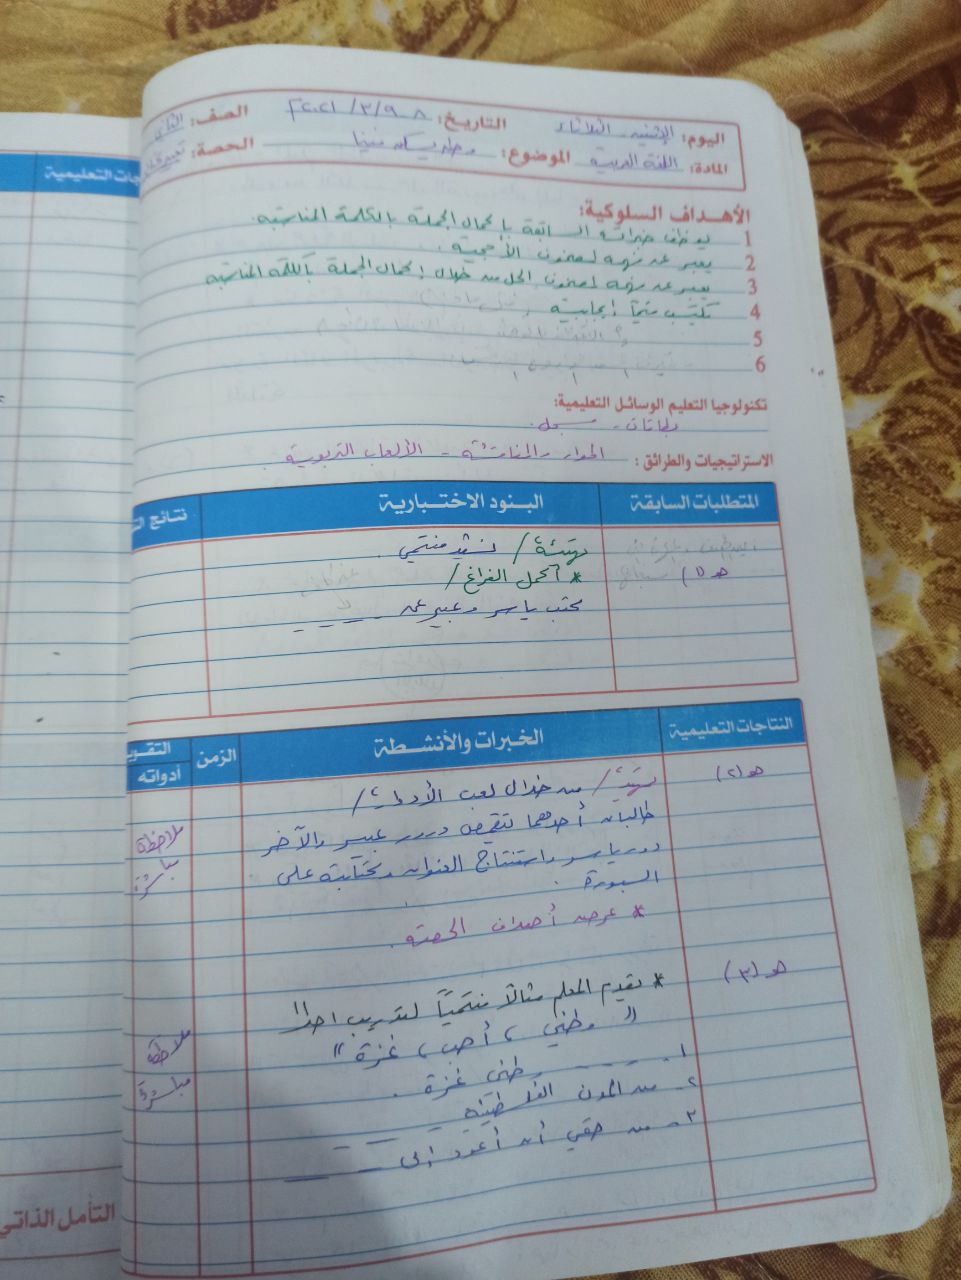 اليوم: الإثنين - الثلاثاء التاريخ: ٨-٩/٣/٢٠٢١ الصف: الثاني
المادة: اللغة العربية الموضوع: وطن يسكن فينا الحصة: تعبير
الأهداف السلوكية:
1 يوظف خبراته السابقة بإكمال الجملة بالكلمة المناسبة
2 يعبر عن فهمه لمضمون الأحجية.
3 يعبر عن فهمه لمضمون الحل من خلال إكمال الجملة بالكلمة المناسبة
4 يكتسب قيماً إيجابية
5
6
تكنولوجيا التعليم الوسائل التعليمية:
بطاقات - سبورة
الاستراتيجيات والطرائق: الحوار والمناقشة - الألعاب التربوية.
المتطلبات السابقة البنود الاختبارية نتائج
تهيئة / نشيد منتمي.
هـ (١) * أكمل الفراغ /
كتب ياسر وعبير عن ------
النتاجات التعليمية الخبرات والأنشطة الزمن التقويم
أدواته
هـ (٢) تهيئة / من خلال لعب الأدوار /
طالبان أحدهما تتقمص دور عبير والآخر ملاحظة
دور ياسر واستنتاج العنوان وكتابته على مباشرة
السبورة.
* عرض أهداف الحصة.
هـ (٣) * يقدم المعلم مثالاً منتمياً لتدريب
" وطني ، أحب ، غزة " ملاحظة
١- ---- وطني غزة. مباشرة
٢- من المدن الفلسطينية ----
٣- من حقي أن أعود إلى ----
التأمل الذاتي
جات التعليمية